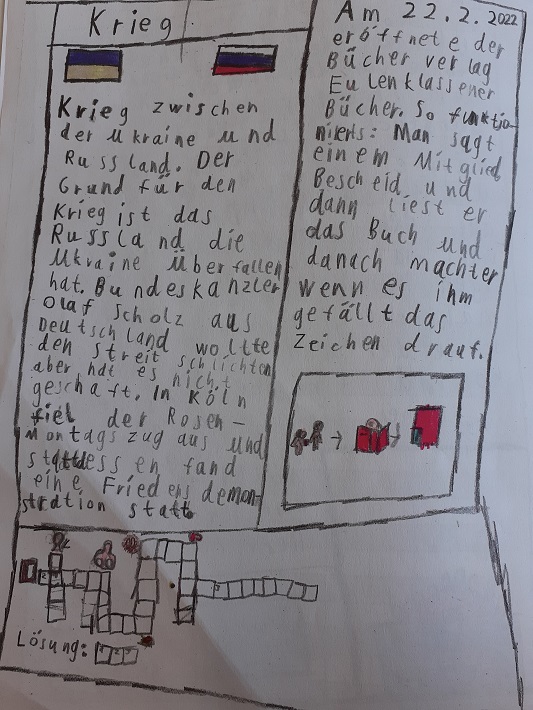 Krieg
Krieg zwischen
der Ukraine und
Russland. Der
Grund für den
Krieg ist das
Russland die
Ukraine überfallen
hat. Bundeskanzler
Olaf Scholz aus
Deutschland wollte
den streit schlichten
aber hat es nicht
geschaft. In Köln
fiel der Rosen-
montagszug aus und
stattdessen fand
eine Friedensdemon-
stration statt
Am 22.2.2022
eröffnete der
Bücher verlag
Eulenklassener
Bücher. So funktio-
nierts: Man sagt
einem Mitglied
Bescheid und
dann liest er
das Buch und
danach macht er
wenn es ihm
gefällt das
Zeichen drauf.
Lösung: